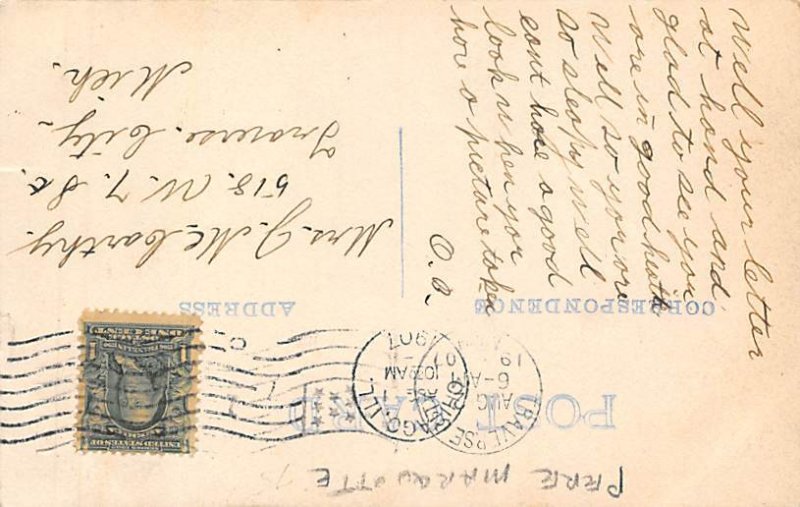 POST CARD
CORRESPONDENCE
ADDRESS
Well your letter
at hand and
glad to see you
are in good health
well so you are
so sleepy well
cant have a good
look when you
have a picture taken
O. D.
Mrs. J. McCarthy.
518. W. 7. St.
Traverse. City.
Mich.
CHICAGO, ILL.
1030AM
1907
TRAVERSE
AUG
6-AM
19
07
UNITED STATES OF
PERE MARQUETTE